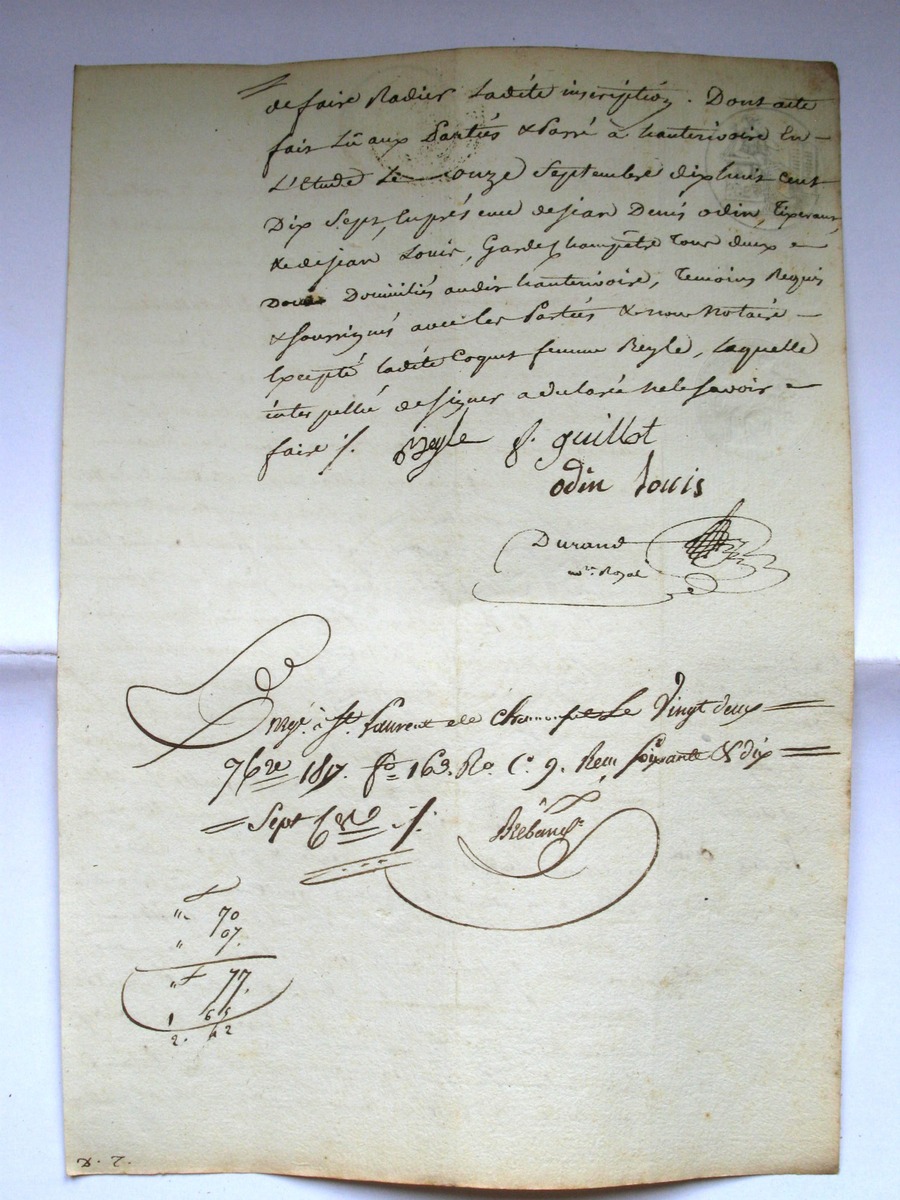 de faire Radier Ladite inscription. Dont acte
fait Lû aux Parties & Passé à hauterivoire En
L'Etude Le onze Septembre dix huit cent
Dix Sept, En présence de jean Denis odin, Tixerant,
& de jean Louis, Garde Champêtre Tous deux
Domiciliés audit hauterivoire, Temoins Requis
& soussignés avec les Parties & nous Notaire
Excepté ladite Coquet femme Reyle, laquelle
interpellée de signer a déclaré ne le savoir
faire ./.
Reyle f. guillot
odin Louis
Durand
nre Royal
Enregé. à St. Laurent de Chamousset Le Vingt deux
7bre 1817. fo 163. Ro. Ce. 9. Reçu Soixante & dix
Sept Cmes ./.
f
" 70
" 07.
" f 77.
1 65
2. 42
D. T.